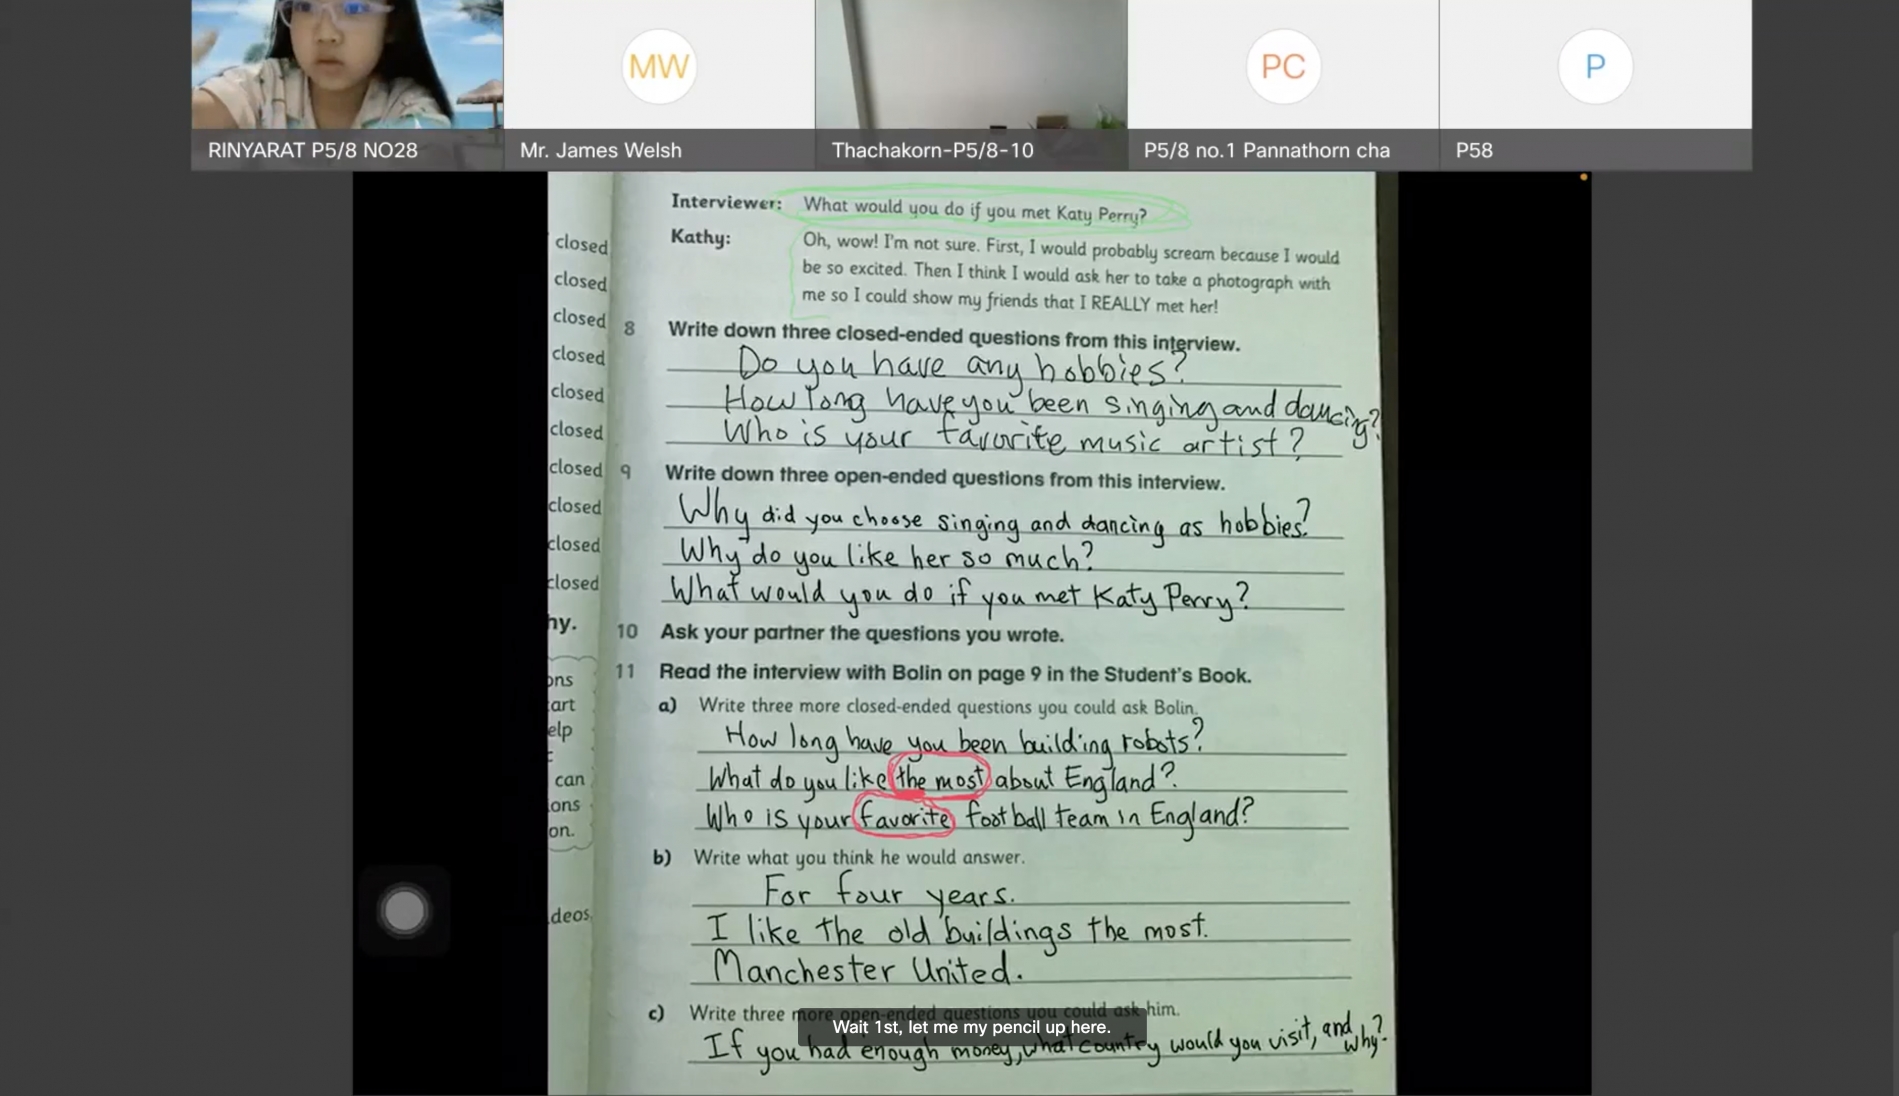 MW
PC
P
RINYARAT P5/8 NO28
Mr. James Welsh
Thachakorn-P5/8-10
P5/8 no.1 Pannathorn cha
P58
Interviewer: What would you do if you met Katy Perry?
Kathy: Oh, wow! I'm not sure. First, I would probably scream because I would
be so excited. Then I think I would ask her to take a photograph with
me so I could show my friends that I REALLY met her!
closed
closed
closed
closed
closed
closed
closed
closed
closed
closed
hy.
ons
art
elp
can
ons
on.
deos
8 Write down three closed-ended questions from this interview.
Do you have any hobbies?
How long have you been singing and dancing?
Who is your favorite music artist?
9 Write down three open-ended questions from this interview.
Why did you choose singing and dancing as hobbies?
Why do you like her so much?
What would you do if you met Katy Perry?
10 Ask your partner the questions you wrote.
11 Read the interview with Bolin on page 9 in the Student's Book.
a) Write three more closed-ended questions you could ask Bolin.
How long have you been building robots?
What do you like the most about England?
Who is your favorite football team in England?
b) Write what you think he would answer.
For four years.
I like the old buildings the most.
Manchester United.
c) Write three more open-ended questions you could ask him.
Wait 1st, let me my pencil up here.
If you had enough money, what country would you visit, and why?